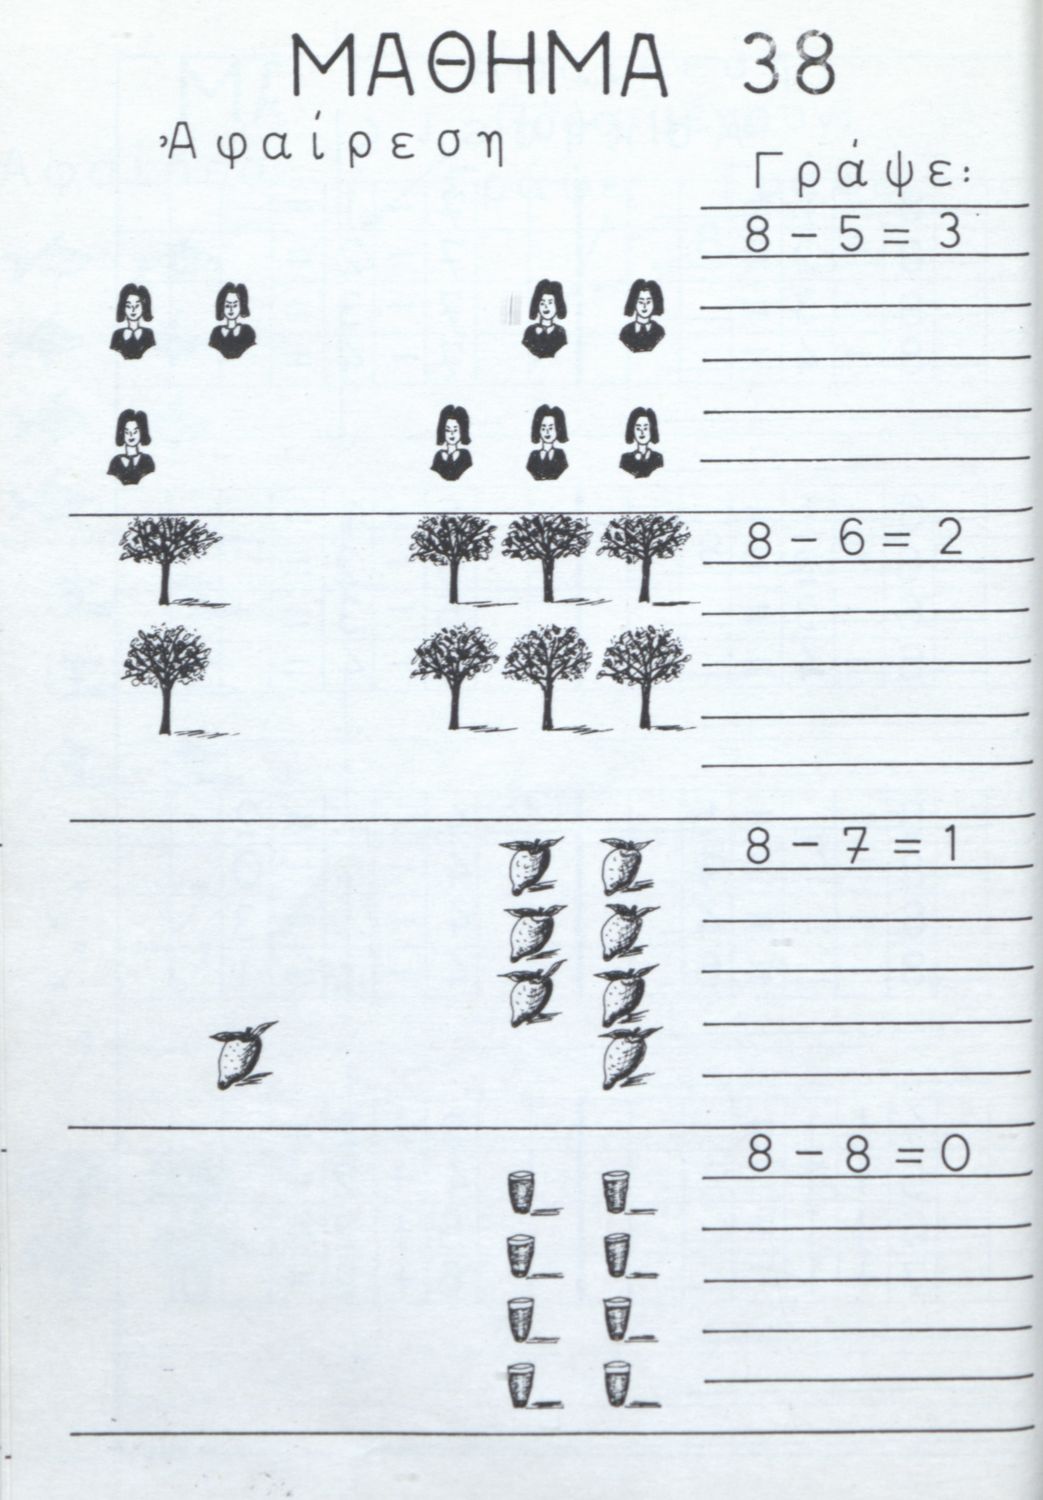 ΜΑΘΗΜΑ 38
Ἀφαίρεση
Γράψε:
8 - 5 = 3
8 - 6 = 2
8 - 7 = 1
8 - 8 = 0